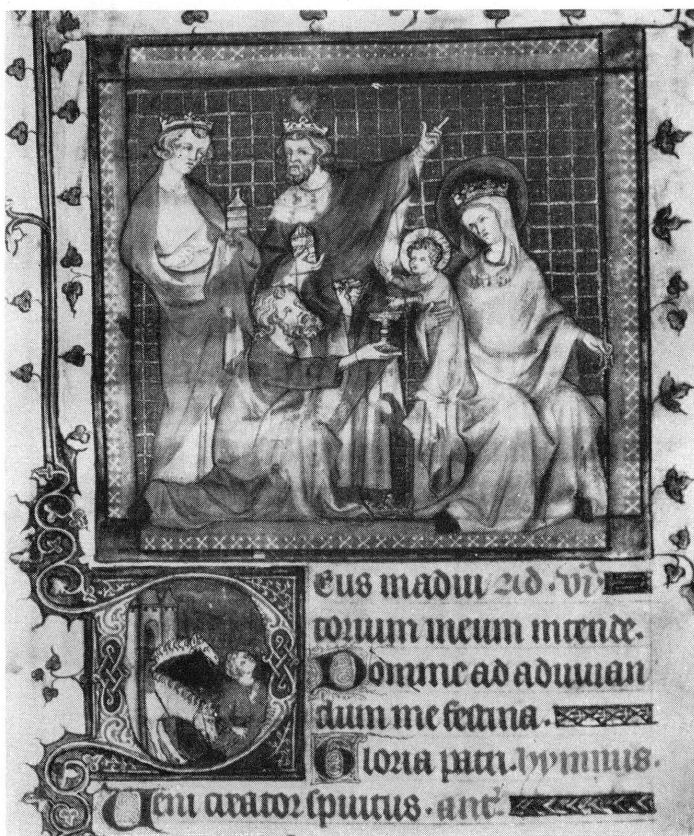 Eus in adiu ad. vi
torium meum intende.
Domine ad adiuuan
dum me festina.
Gloria patri. hymnus.
Ueni creator spiritus. ant.